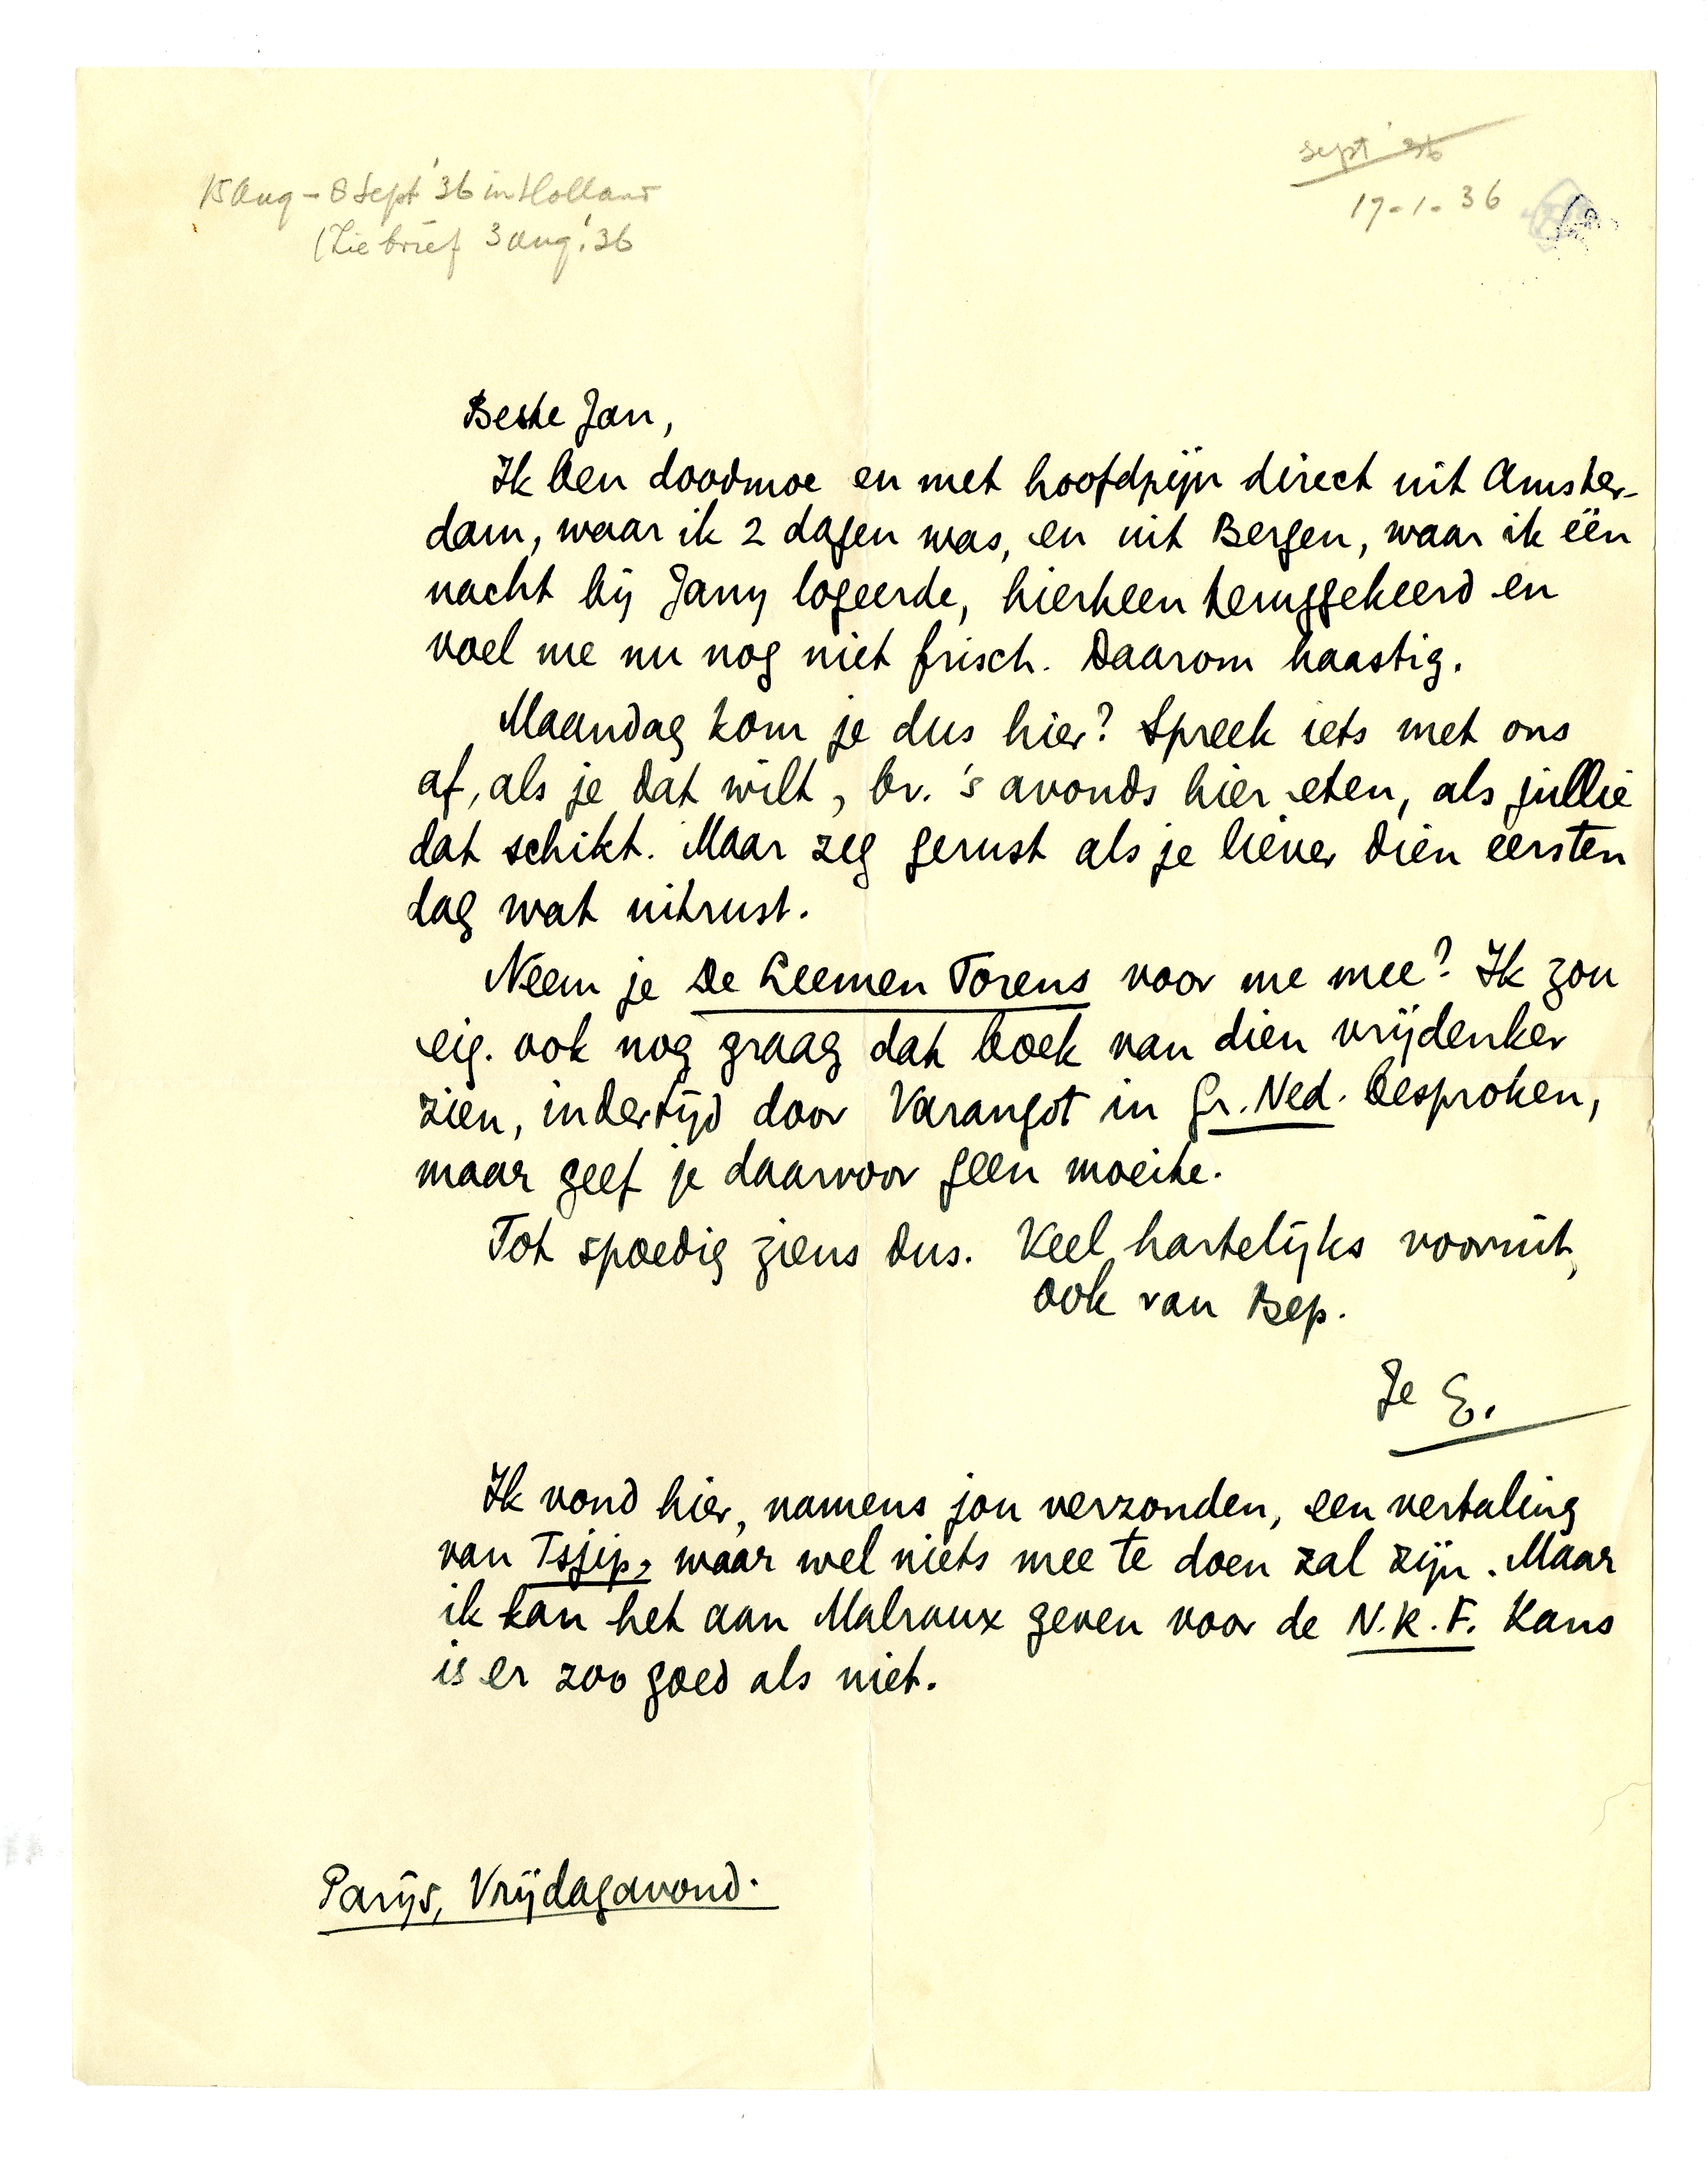 15 Aug – 8 Sept '36 in Holland
(Zie brief 3 aug. '36
sept '36
17-1-36
Beste Jan,
Ik ben doodmoe en met hoofdpijn direct uit Amster-
dam, waar ik 2 dagen was, en uit Bergen, waar ik één
nacht bij Jany logeerde, hierheen teruggekeerd en
voel me nu nog niet frisch. Daarom haastig.
Maandag kom je dus hier? Spreek iets met ons
af, als je dat wilt, bv. 's avonds hier eten, als jullie
dat schikt. Maar zeg gerust als je liever dien eersten
dag wat uitrust.
Neem je De Leemen Torens voor me mee? Ik zou
eig. ook nog graag dat boek van dien vrijdenker
zien, indertijd door Varangot in Gr. Ned. besproken,
maar geef je daarvoor geen moeite.
Tot spoedig ziens dus. Veel hartelijks vooruit,
ook van Bep.
Je E.
Ik vond hier, namens jou verzonden, een vertaling
van Tsjip, waar wel niets mee te doen zal zijn. Maar
ik kan het aan Malraux geven voor de N.R.F. Kans
is er zoo goed als niet.
Parijs, Vrijdagavond.